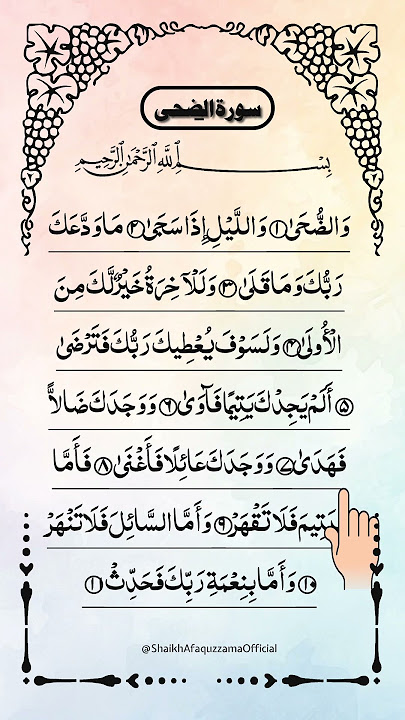 سورة الضحى
بِسْمِ اللَّهِ الرَّحْمَٰنِ الرَّحِيمِ
وَالضُّحَىٰ ١ وَاللَّيْلِ إِذَا سَجَىٰ ٢ مَا وَدَّعَكَ
رَبُّكَ وَمَا قَلَىٰ ٣ وَلَلْآخِرَةُ خَيْرٌ لَّكَ مِنَ
الْأُولَىٰ ٤ وَلَسَوْفَ يُعْطِيكَ رَبُّكَ فَتَرْضَىٰ
٥ أَلَمْ يَجِدْكَ يَتِيمًا فَآوَىٰ ٦ وَوَجَدَكَ ضَالًّا
فَهَدَىٰ ٧ وَوَجَدَكَ عَائِلًا فَأَغْنَىٰ ٨ فَأَمَّا
فَلَا تَقْهَرْ ٩ وَأَمَّا السَّائِلَ فَلَا تَنْهَرْ
١٠ وَأَمَّا بِنِعْمَةِ رَبِّكَ فَحَدِّثْ
@ShaikhAfaquzzamaOfficial